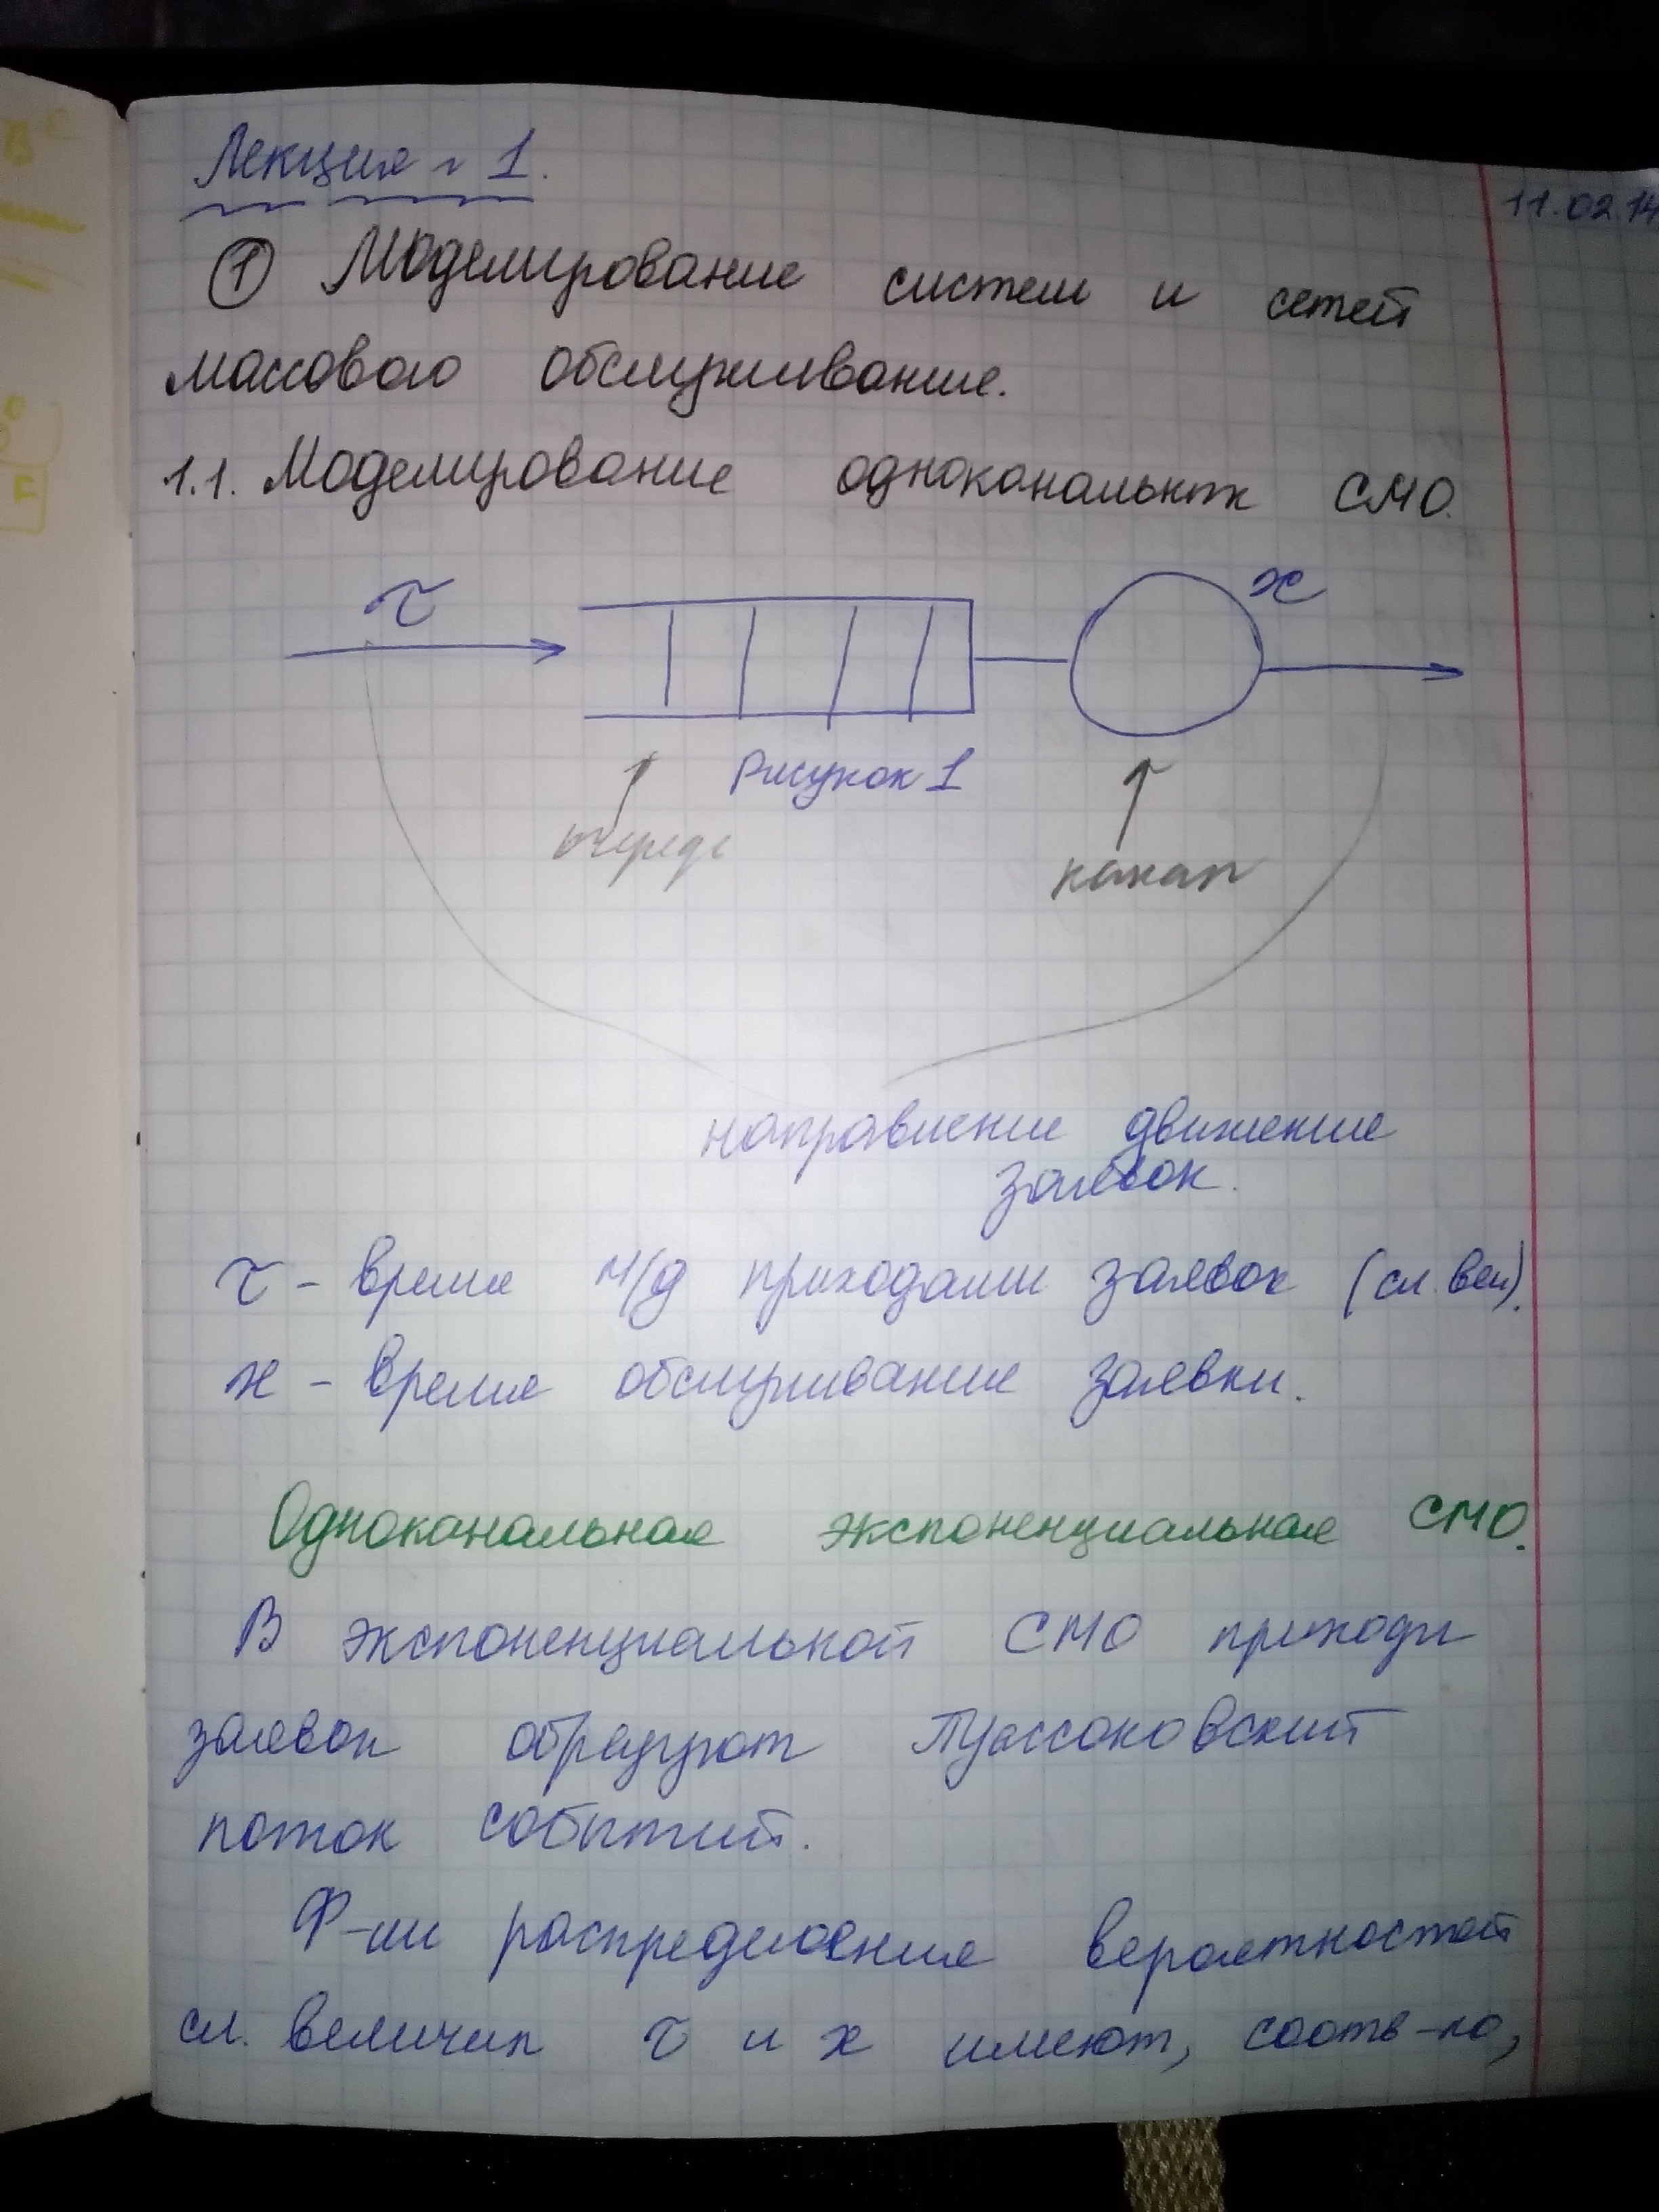 Лекция № 1.
11.02.14
① Моделирование систем и сетей
массового обслуживания.
1.1. Моделирование одноканальных СМО.
τ
x
Рисунок 1
очередь
канал
направление движения
заявок.
τ - время м/д приходами заявок (сл. вел).
x - время обслуживания заявки.
Одноканальная экспоненциальная СМО.
В экспоненциальной СМО приходы
заявок образуют Пуассоновский
поток событий.
Ф-ии распределения вероятностей
сл. величин τ и x имеют, соотв-но,